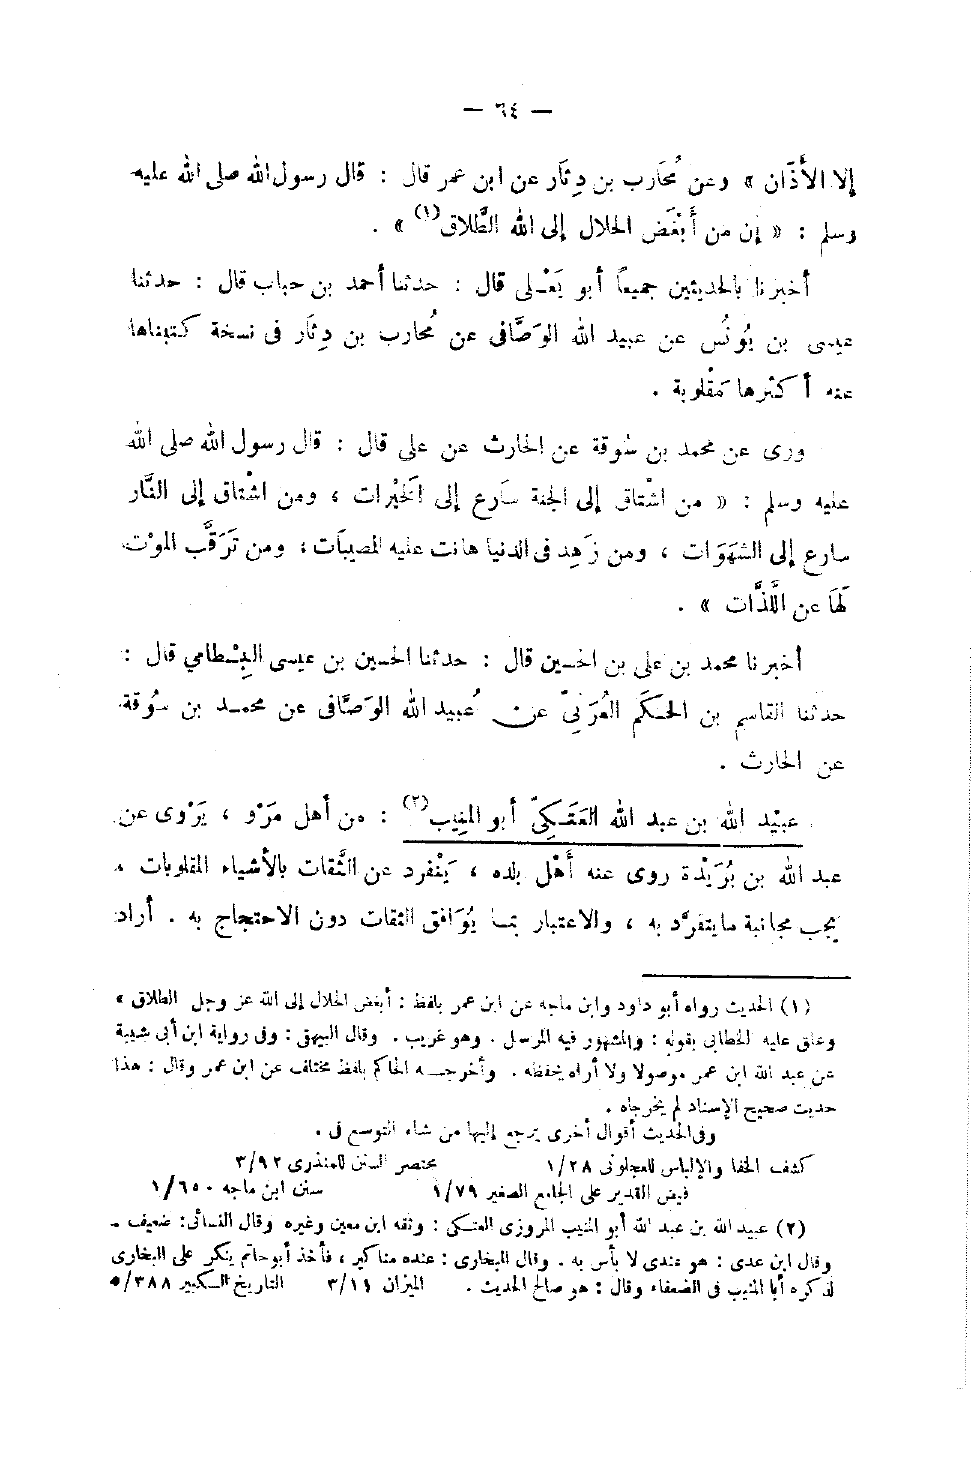 — ٦٤ —
إلا الأَذَان » وعن مُحَارب بن دِثَار عن ابن عمر قال : قال رسول الله صلى الله عليه
وسلم : « إن من أَبْغَض الحلال إلى الله الطَّلاق(١) » .
أخبرنا بالحديثين جميعاً أبو يَعْـلى قال : حدثنا أحمد بن حباب قال : حدثنا
عيسى بن يُونُس عن عبيد الله الوَصَّافى عن مُحارب بن دِثَار فى نسخة كتبناها
عنه أكثرها مَقْلوبة .
وروى عن محمد بن سُوقة عن الحارث عن على قال : قال رسول الله صلى الله
عليه وسلم : « من اشْتاق إلى الجنة سَارع إلى الَخيْرات ، ومن اشْتاق إلى النَّار
سارع إلى الشهَوَات ، ومن زَهِد فى الدنيا هانت عليه المصيبَات ، ومن تَرَقَّب الموْت
لَهَا عن اللَّذَّات » .
أخبرنا محمد بن على بن الحسين قال : حدثنا الحسين بن عيسى البِسْطامي قال :
حدثنا القاسم بن الحَكَم العُرَنِيّ عن عُبيد الله الوَصَّافى عن محمـد بن سُوقة
عن الحارث .
عبيْد الله بن عبد الله العَتَـكِيّ أبو المنِيب(٢) : من أهل مَرْو ، يَرْوى عن
عبد الله بن بُرَيْدة روى عنه أَهْل بلده ، يَنْفرد عن الثَّقات بالأشياء المقلوبات ،
يجب مجانبة ما يتفرَّد به ، والاعتبار بمـا يُوَافق الثقات دون الاحتجاج به . أراد
(١) الحديث رواه أبو داود وابن ماجه عن ابن عمر بلفظ : أبغض الحلال إلى الله عز وجل الطلاق »
وعلق عليه الخطابى بقوله : والمشهور فيه المرسل . وهو غريب . وقال البيهقى : وفى رواية ابن أبى شيبة
عن عبد الله ابن عمر موصولا ولا أراه يحفظه . وأخرجـه الحاكم بلفظ مختلف عن ابن عمر وقال : هذا
حديث صحيح الإسناد لم يخرجاه .
وفى الحديث أقوال أخرى يرجع إليها من شاء التوسع فى .
كشف الخفا والإلباس للعجلونى ١/٢٨ مختصر السنن للمنذرى ٣/٩٢
فيض القدير على الجامع الصغير ١/٧٩ سنن ابن ماجه ١/٦٥٠
(٢) عبيد الله بن عبد الله أبو المنيب المروزى العتكى : وثقه ابن معين وغيره وقال النسائى : ضعيف ـ
وقال ابن عدى : هو عندى لا بأس به . وقال البخارى : عنده مناكير ، فأخذ أبو حاتم ينكر على البخارى
لذكره أبا المنيب فى الضعفاء وقال : هو صالح الحديث . الميزان ٣/١١ التاريخ الـكبير ٥/٣٨٨